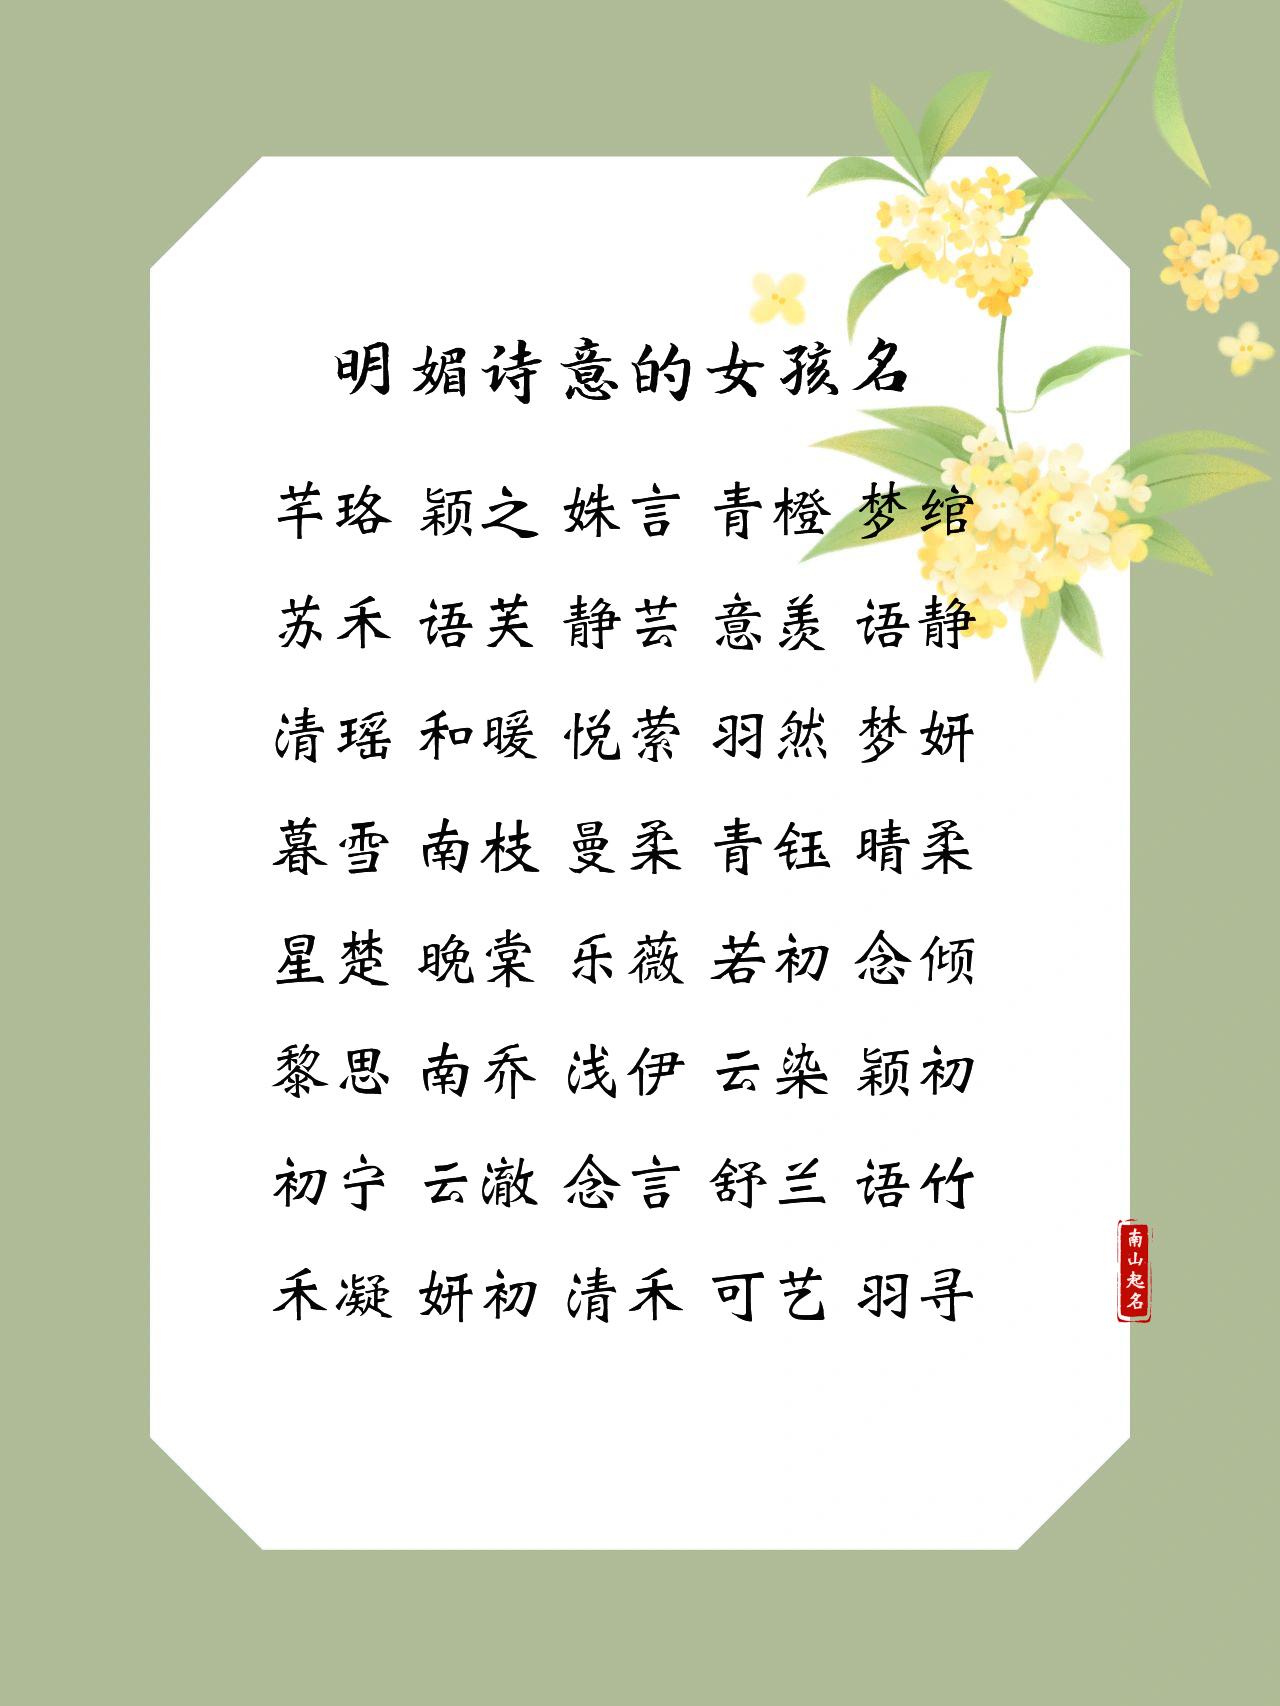 明媚诗意的女孩名
芊珞 颖之 姝言 青橙 梦绾
苏禾 语芙 静芸 意羡 语静
清瑶 和暖 悦萦 羽然 梦妍
暮雪 南枝 曼柔 青钰 晴柔
星楚 晚棠 乐薇 若初 念倾
黎思 南乔 浅伊 云染 颖初
初宁 云澈 念言 舒兰 语竹
禾凝 妍初 清禾 可艺 羽寻
南山起名